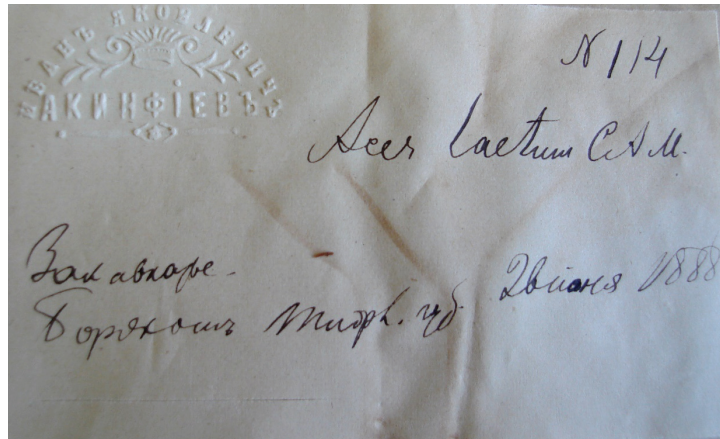 ИВАНЪ ЯКОВЛЕВИЧЪ
АКИНФІЕВЪ
N 114
Acer laetum C.A.M.
Закавказье.
Боржомъ Тифл. губ. 28 июня 1888